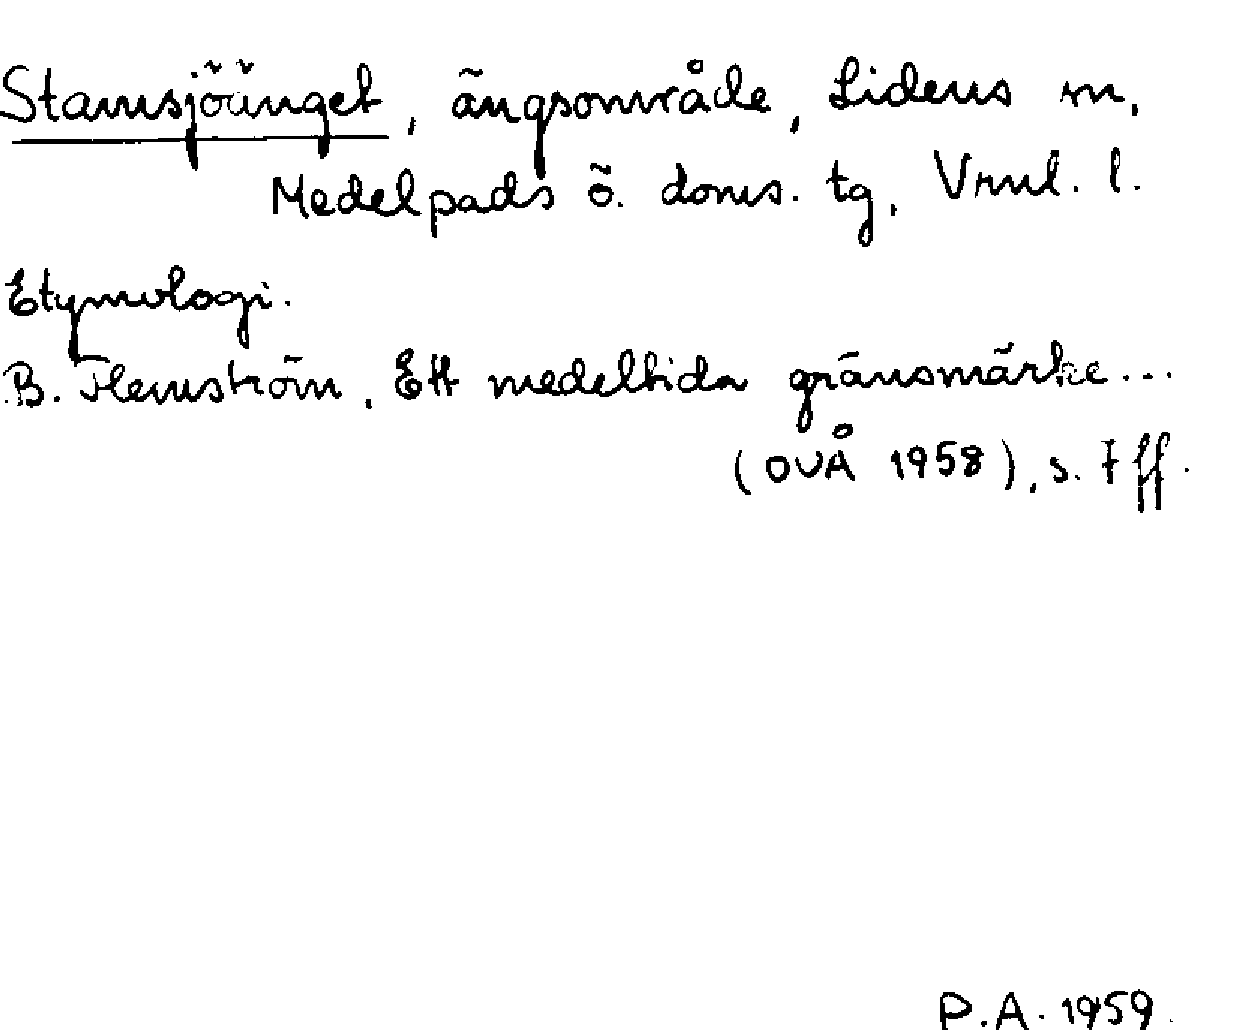 Stamsjöänget, ängsområde, Lidens sn,
Medelpads ö. doms. tg, Vrnl. l.
Etymologi.
B. Flemström, Ett medeltida gränsmärke...
(OVÅ 1958), s. 7 ff.
P.A. 1959.